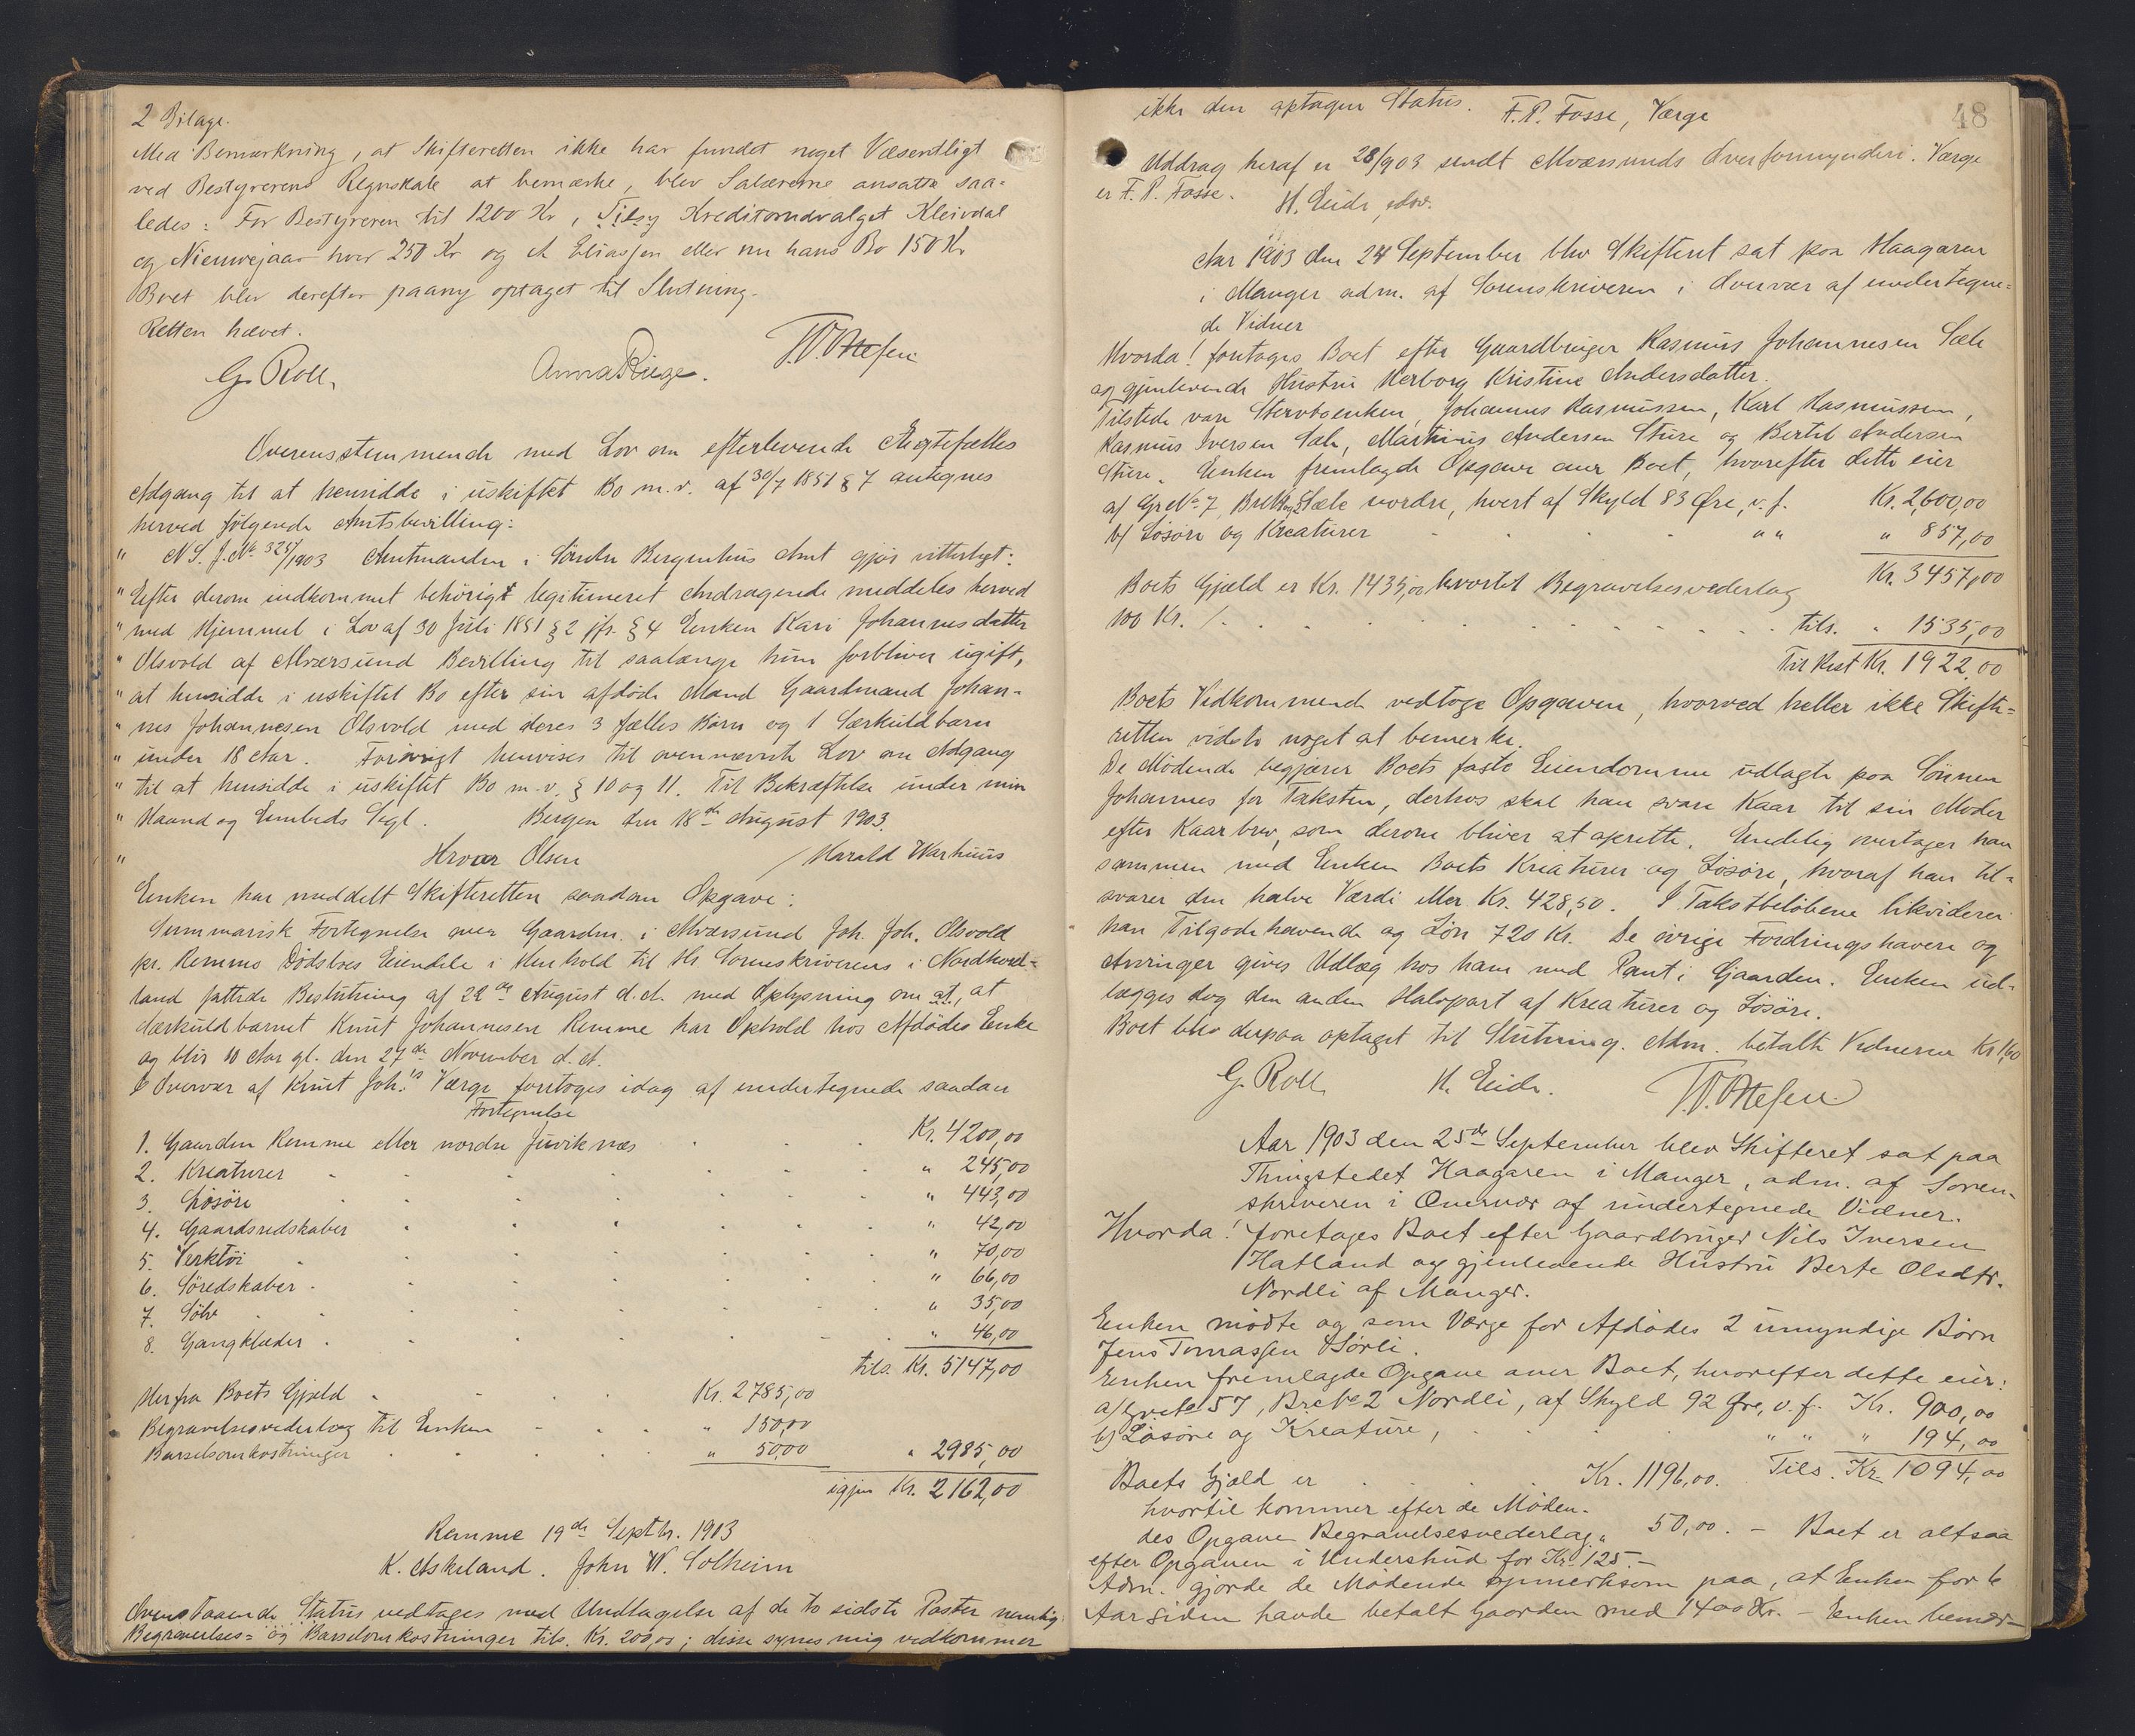 2 Bilage.
Med Bemærkning, at Skifteretten ikke har fundet noget Væsentligt
ved Bestyrerens Regnskab at bemærke, blev Salærerne ansatte saa-
ledes: For Bestyreren til 1200 Kr, Kreditorudvalget Kleivdal
og Nieuwejaar hver 250 Kr og A Eliassen eller nu hans Bo 150 Kr
Boet blev derefter paany optaget til Slutning.
Retten hævet.
G. Roll. Anna Riege.
Overensstemmende med Lov om efterlevende Ægtefælles
Adgang til at hensidde i uskiftet Bo m.v. af 30/7 1851 § 7 antegnes
herved følgende Amtsbevilling:
" N S. J. No 325/1903 Amtmanden i Søndre Bergenhus Amt gjør vitterligt:
" Efter derom indkommet behørigt legitimeret Andragende meddeles herved
" med Hjemmel i Lov af 30 Juli 1851 § 2 jfr. § 4 Enken Kari Johannesdatter
" Olsvold af Alværsund Bevilling til saalænge hun forbliver ugift,
" at hensidde i uskiftet Bo efter sin afdøde Mand Gaardmand Johan-
" nes Johannesen Olsvold med deres 3 fælles Børn og 1 Særkuldbarn
" under 18 Aar. Forøvrigt henvises til ovennævnte Lov om Adgang
" til at hensidde i uskiftet Bo m.v. § 10 og 11. Til Bekræftelse under min
" Haand og Embeds Segl. Bergen den 18de August 1903.
" Hroar Olsen / Harald Warhuus
Enken har meddelt Skifteretten saadan Opgave:
Summarisk Fortegnelse over Gaardm. i Alværsund Joh. Joh. Olsvold
pr. Remme Dødsboes Eiendele i Henhold til Hr. Sorenskriverens i Nordhord-
land fattede Beslutning af 22de August d.A. med Oplysning om at, at
Særkuldbarnet Knut Johannesen Remme har Ophold hos Afdødes Enke
og blir 10 Aar gl. den 27de November d.A.
I Overvær af Knut Joh.'s Værge foretoges idag af undertegnede saadan
Fortegnelse
1. Gaarden Remme eller nordre Juviknæs Kr. 4200,00
2. Kreaturer " 245,00
3. Løsøre " 443,00
4. Gaardsredskaber " 42,00
5. Verktøi " 70,00
6. Søredskaber " 66,00
7. Sølv " 35,00
8. Gangklæder " 46,00
tils. Kr. 5147,00
Herfra Boets Gjæld Kr. 2785,00
Begravelsesvederlag til Enken " 150,00
Barselsomkostninger " 50,00 " 2985,00
igjen Kr. 2162,00
Remme 19de Septbr. 1903
K. Askeland. John W. Solheim
Ovenstaaende Status vedtages med Undtagelse af de to sidste Poster nemlig
Begravelses- og Barselomkostninger tils. Kr. 200,00; disse synes mig vedkommer
48
ikke den optagne Status. F.P. Fosse, Værge
Uddrag heraf er 28/9 03 sendt Alværsunds Overformynderi. Værge
er F. P. Fosse. H. Eide,
Aar 1903 den 24 September blev Skifteret sat paa Haagaren
i Manger adm. af Sorenskriveren i Overvær af undertegne-
de Vidner
Hvorda! foretoges Boet efter Gaardbruger Rasmus Johannesen Sæle
og gjenlevende Hustru Herborg Kristine Andersdatter.
Tilstede vare Stervboenken, Johannes Rasmussen, Karl Rasmussen,
Rasmus Iversen Sæle, Martinus Andersen Sture og Bertel Andersen
Sture. Enken fremlagde Opgave over Boet, hvorefter dette eier
a/ Gr No 7, Sæle nordre, hvert af Skyld 83 Øre, v. f. Kr. 2,600,00
b/ Løsøre og Kreaturer " " " 857,00
Kr. 3457,00
Boets Gjæld er Kr. 1435,00 hvortil Begravelsesvederlag
100 Kr. /. tils. " 1535,00
Til Rest Kr. 1922,00
Boets Vedkommende vedtoge Opgaven, hvorved heller ikke Skifte-
retten vidste noget at bemerke.
De Mødende begjærer Boets faste Eiendomme udlagte paa Sønnen
Johannes for Taksten, derhos skal han svare Kaar til sin Moder
efter Kaarbrev, som derom bliver at oprette. Endelig overtager han
sammen med Enken Boets Kreaturer og Løsøre, hvoraf han til-
svarer den halve Værdi eller Kr. 428,50. I Takstbeløbene likviderer
han Tilgodehavende og Løn 720 Kr. De øvrige Fordringshavere og
Arvinger gives Udlæg hos ham med Pant i Gaarden. Enken ud-
lægges dog den anden Halvpart af Kreaturer og Løsøre.
Boet blev derpaa optaget til Slutning. Adm. betalte Vidnerne Kr 1,60
G. Roll H. Eide.
Aar 1903 den 25de September blev Skifteret sat paa
Thingstedet Haagaren i Manger, adm. af Soren-
skriveren i Overvær af undertegnede Vidner.
Hvorda! foretages Boet efter Gaardbruger Nils Iversen
Hatland og gjenlevende Hustru Berte Olsdtr.
Nordli af Manger.
Enken mødte og som Værge for Afdødes 2 umyndige Børn
Jens Tomassen Sørli.
Enken fremlagde Opgave over Boet, hvorefter dette eier:
a) Gr No 57, Br No 2 Nordli, af Skyld 92 Øre, v. f. Kr. 900,00
b) Løsøre og Kreature, " " " 194,00
Boets Gjæld er Kr. 1196,00. Tils. Kr. 1094,00
hvortil kommer efter de Møden-
des Opgave Begravelsesvederlag " 50,00. - Boet er altsaa
efter Opgaven i Underskud for Kr. 125.-
Adm. gjorde de Mødende opmerksom paa, at Enken for 6
Aar siden havde betalt Gaarden med 1400 Kr. - Enken bemær-